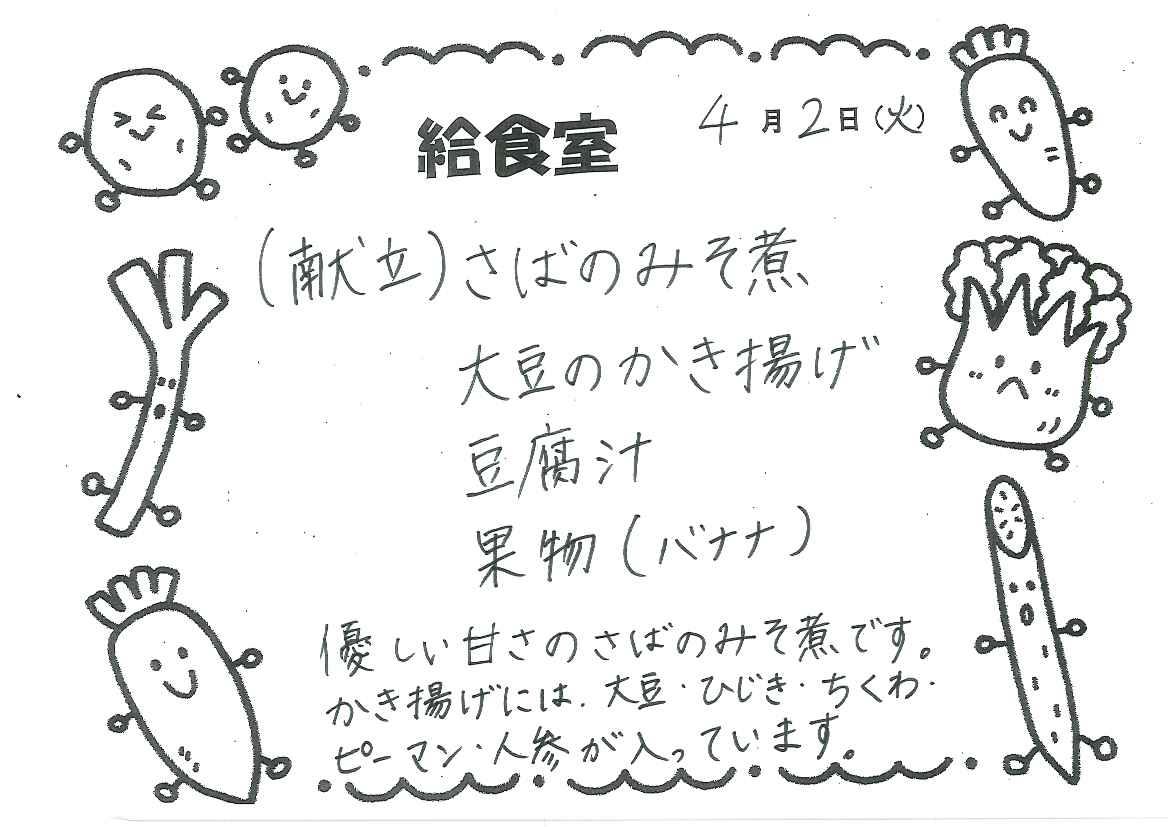 給食室
4月2日(火)
(献立)さばのみそ煮
大豆のかき揚げ
豆腐汁
果物(バナナ)
優しい甘さのさばのみそ煮です。
かき揚げには、大豆・ひじき・ちくわ・
ピーマン・人参が入っています。